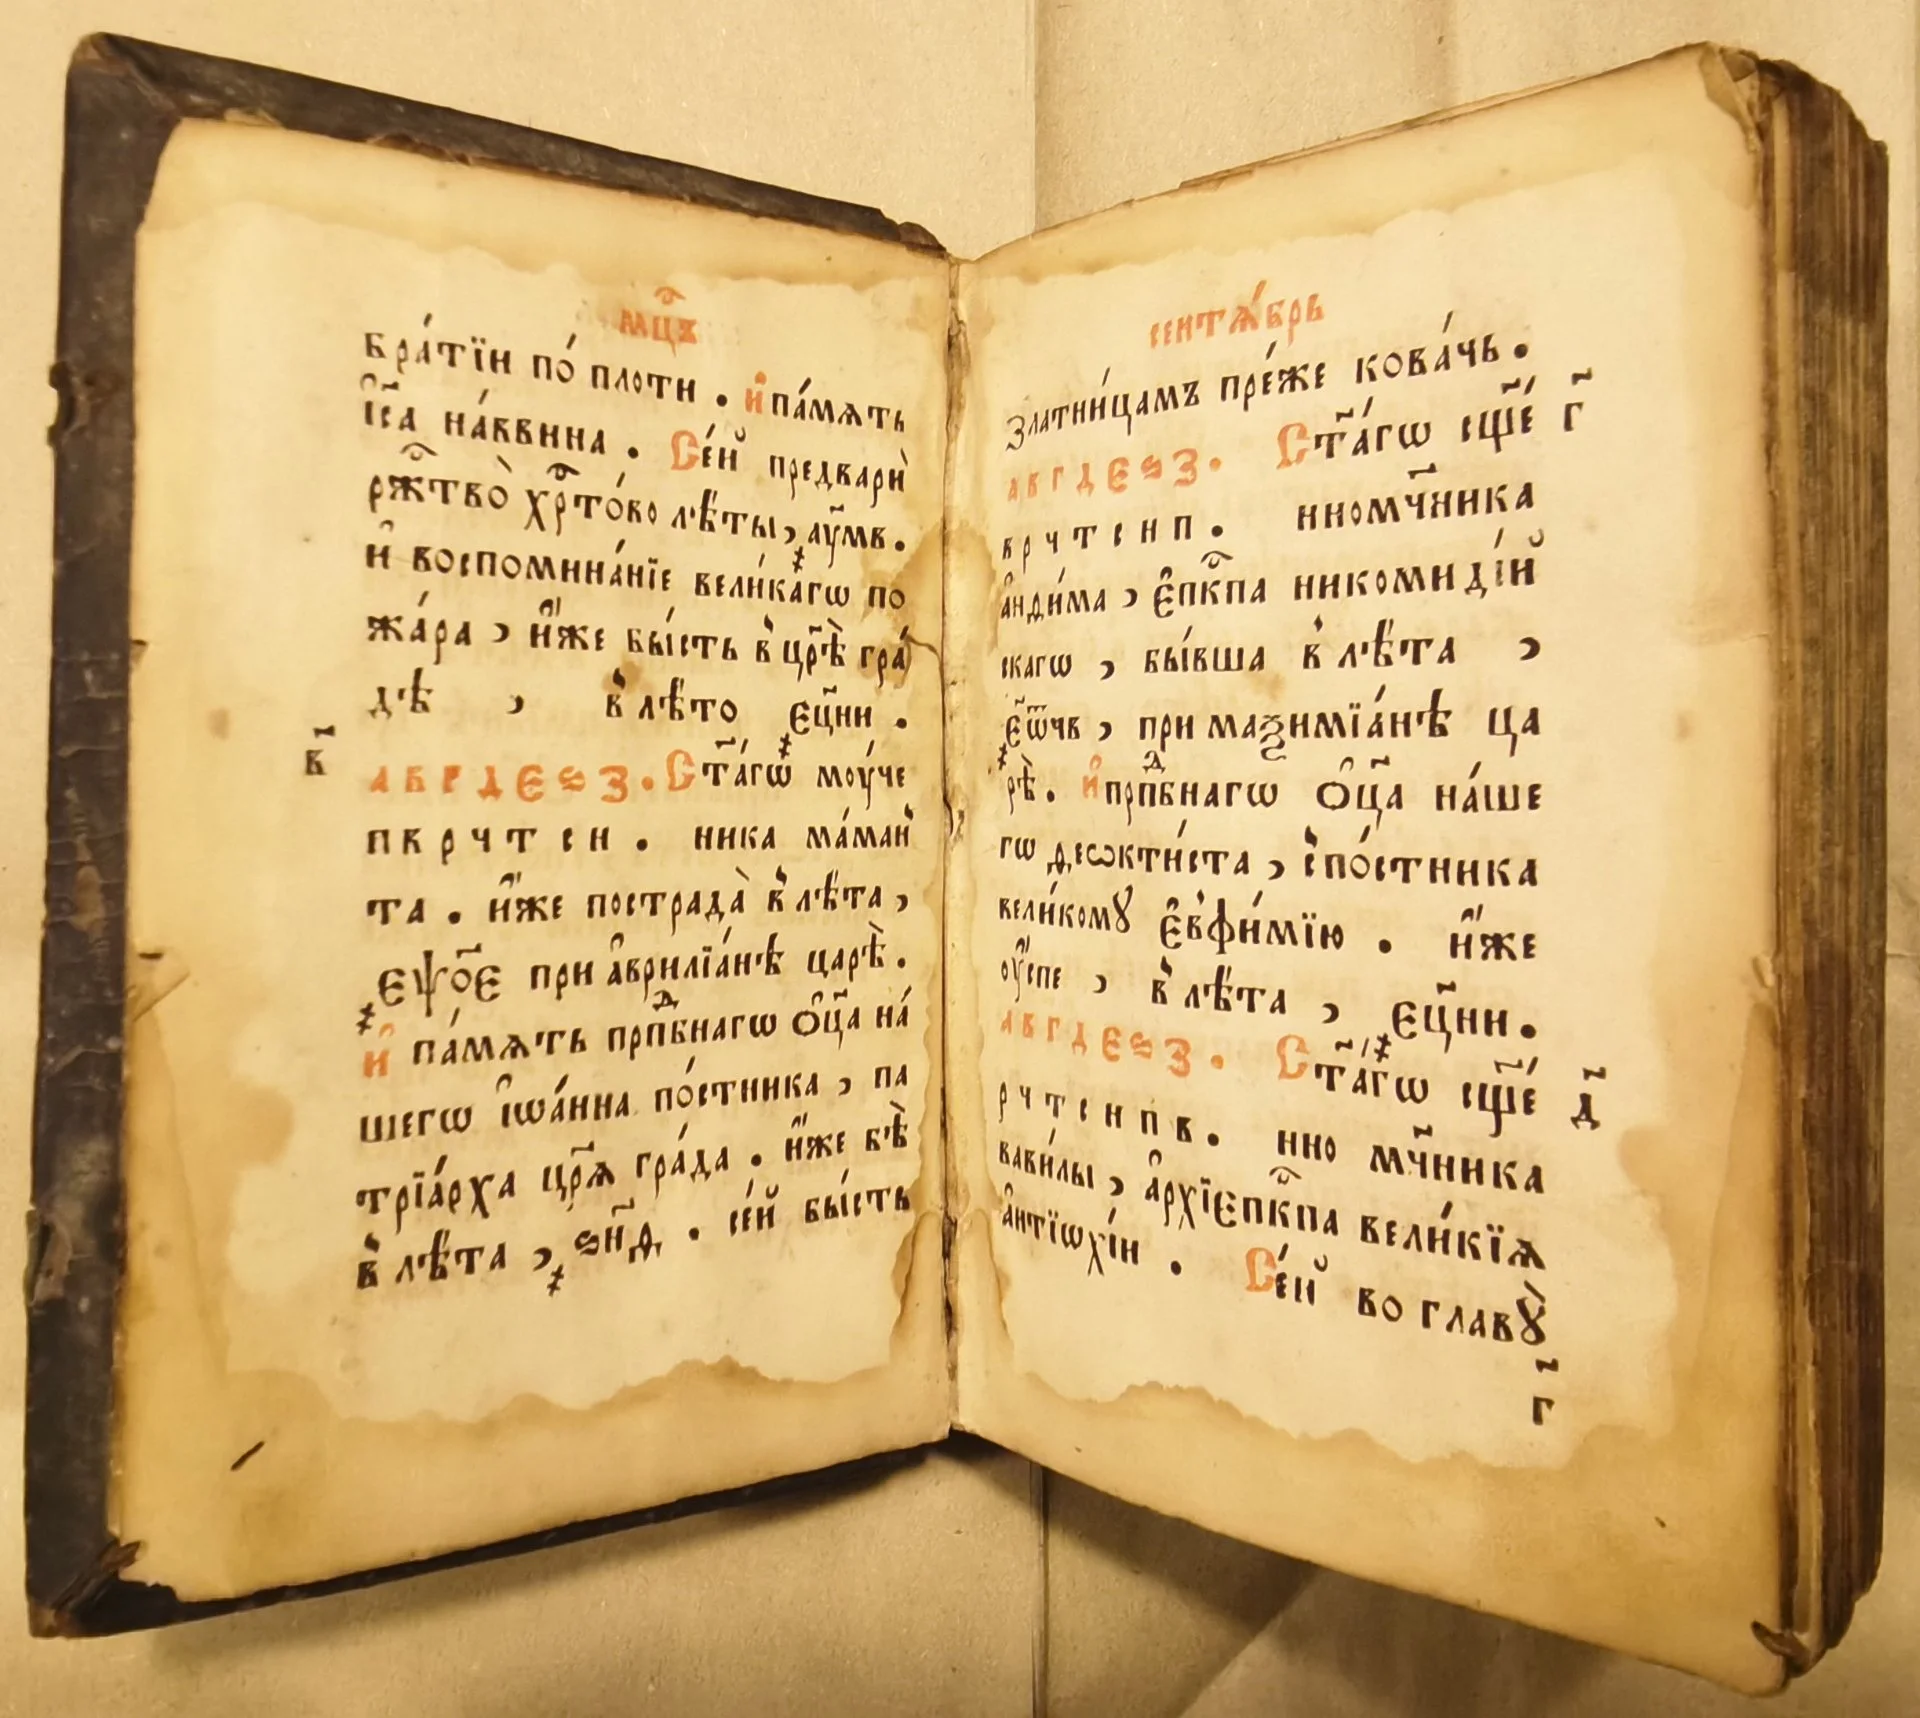 мц҃ъ
бра́тїи по́ плоти . и҆ па́мять
і҆с҃а на́ввина . Се́й предварѝ
рж҃тво̀ хр҃то́во лѣ́ты, ау҃мв .
и҆ воспомина́нїе вели́кагѡ по
жа́ра , и҆́же бы́сть в̾ цр҃ѣ̀ гра́
дѣ , в̾ лѣ́то ҂єц҃ни .
в҃
а в г д є ѕ з . Ст҃а́гѡ мѹ́че
п в р ч т с н . ника ма́ман
та . и҆́же пострада̀ в̾ лѣ́та ,
҂єѱ҃ое при а҆врилїа́нѣ царѣ̀ .
и҆ па́мять прпⷣбнагѡ ѻ҆ц҃а на́
шегѡ і҆ѡа́нна по́стника , па
трїа́рха цр҃ѧ гра́да . и҆́же бѣ̀
в̾ лѣ́та , ҂ѕн҃д . се́й бы́сть
сентѧ́брь
златни́цамъ пре́же кова́чь .
г҃
а в г д є ѕ з . Ст҃а́гѡ сщ҃е́
в р ч т с н п . нномч҃ника
а҆нди́ма , є҆пк҃па никомиді́й
скагѡ , бы́вша в̾ лѣ́та ,
҂єѿчв , при маѯимїа́нѣ ца
рѣ̀ . и҆ прпⷣбнагѡ ѻ҆ц҃а на́ше
гѡ деѡкти́ста , спо́стника
вели́комꙋ є҆вфи́мїю . и҆́же
ѹ҆́спе , в̾ лѣ́та , ҂єц҃ни .
а в г д є ѕ з . Ст҃а́гѡ сщ҃е́
д҃
р ч т с н п в . нно мч҃ника
вави́лы , а҆рхїєпк҃па вели́кїѧ
а҆нтїѡхі́и . Се́й во главꙋ̀
г҃